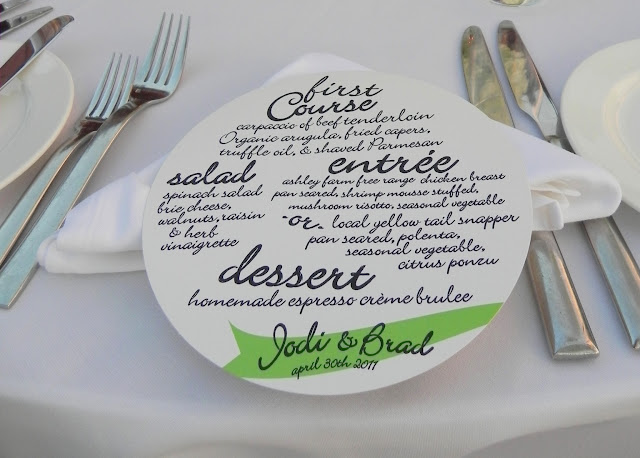 first
Course
carpaccio of beef tenderloin
Organic arugula, fried capers,
truffle oil, & shaved Parmesan
salad
spinach salad
brie cheese,
walnuts, raisin
& herb
vinaigrette
entrée
ashley farm free range chicken breast
pan seared, shrimp mousse stuffed,
mushroom risotto, seasonal vegetable
-or- local yellow tail snapper
pan seared, polenta,
seasonal vegetable,
citrus ponzu
dessert
homemade espresso crème brulee
Jodi & Brad
april 30th 2011